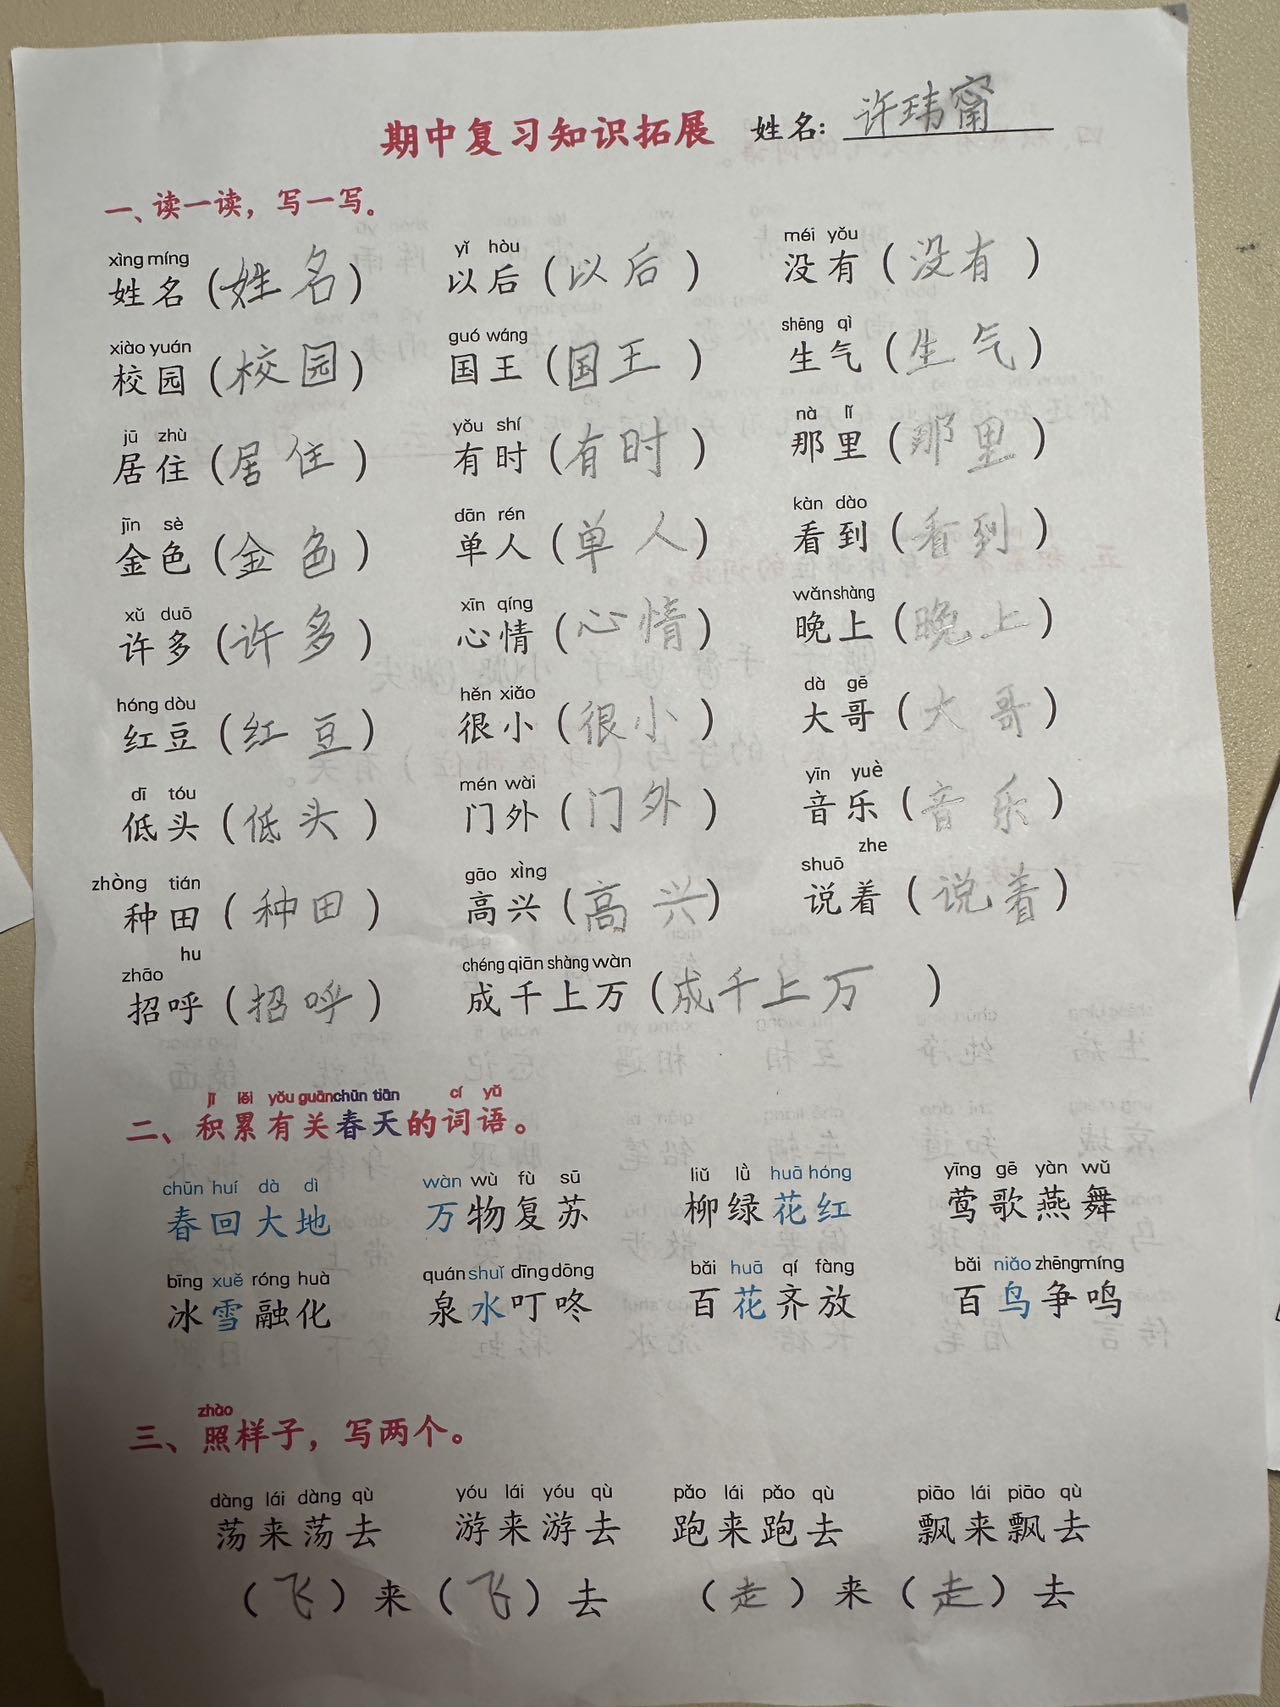 期中复习知识拓展 姓名：许玮甯
一、读一读，写一写。
xìng míng yǐ hòu méi yǒu
姓名（姓名） 以后（以后） 没有（没有）
xiào yuán guó wáng shēng qì
校园（校园） 国王（国王） 生气（生气）
jū zhù yǒu shí nà lǐ
居住（居住） 有时（有时） 那里（那里）
jīn sè dān rén kàn dào
金色（金色） 单人（单人） 看到（看到）
xǔ duō xīn qíng wǎn shàng
许多（许多） 心情（心情） 晚上（晚上）
hóng dòu hěn xiǎo dà gē
红豆（红豆） 很小（很小） 大哥（大哥）
dī tóu mén wài yīn yuè
低头（低头） 门外（门外） 音乐（音乐）
zhòng tián gāo xìng shuō zhe
种田（种田） 高兴（高兴） 说着（说着）
zhāo hu chéng qiān shàng wàn
招呼（招呼） 成千上万（成千上万）
jī lěi yǒu guān chūn tiān cí yǔ
二、积累有关春天的词语。
chūn huí dà dì wàn wù fù sū liǔ lǜ huā hóng yīng gē yàn wǔ
春回大地 万物复苏 柳绿花红 莺歌燕舞
bīng xuě róng huà quán shuǐ dīng dōng bǎi huā qí fàng bǎi niǎo zhēng míng
冰雪融化 泉水叮咚 百花齐放 百鸟争鸣
zhào
三、照样子，写两个。
dàng lái dàng qù yóu lái yóu qù pǎo lái pǎo qù piāo lái piāo qù
荡来荡去 游来游去 跑来跑去 飘来飘去
（飞）来（飞）去 （走）来（走）去